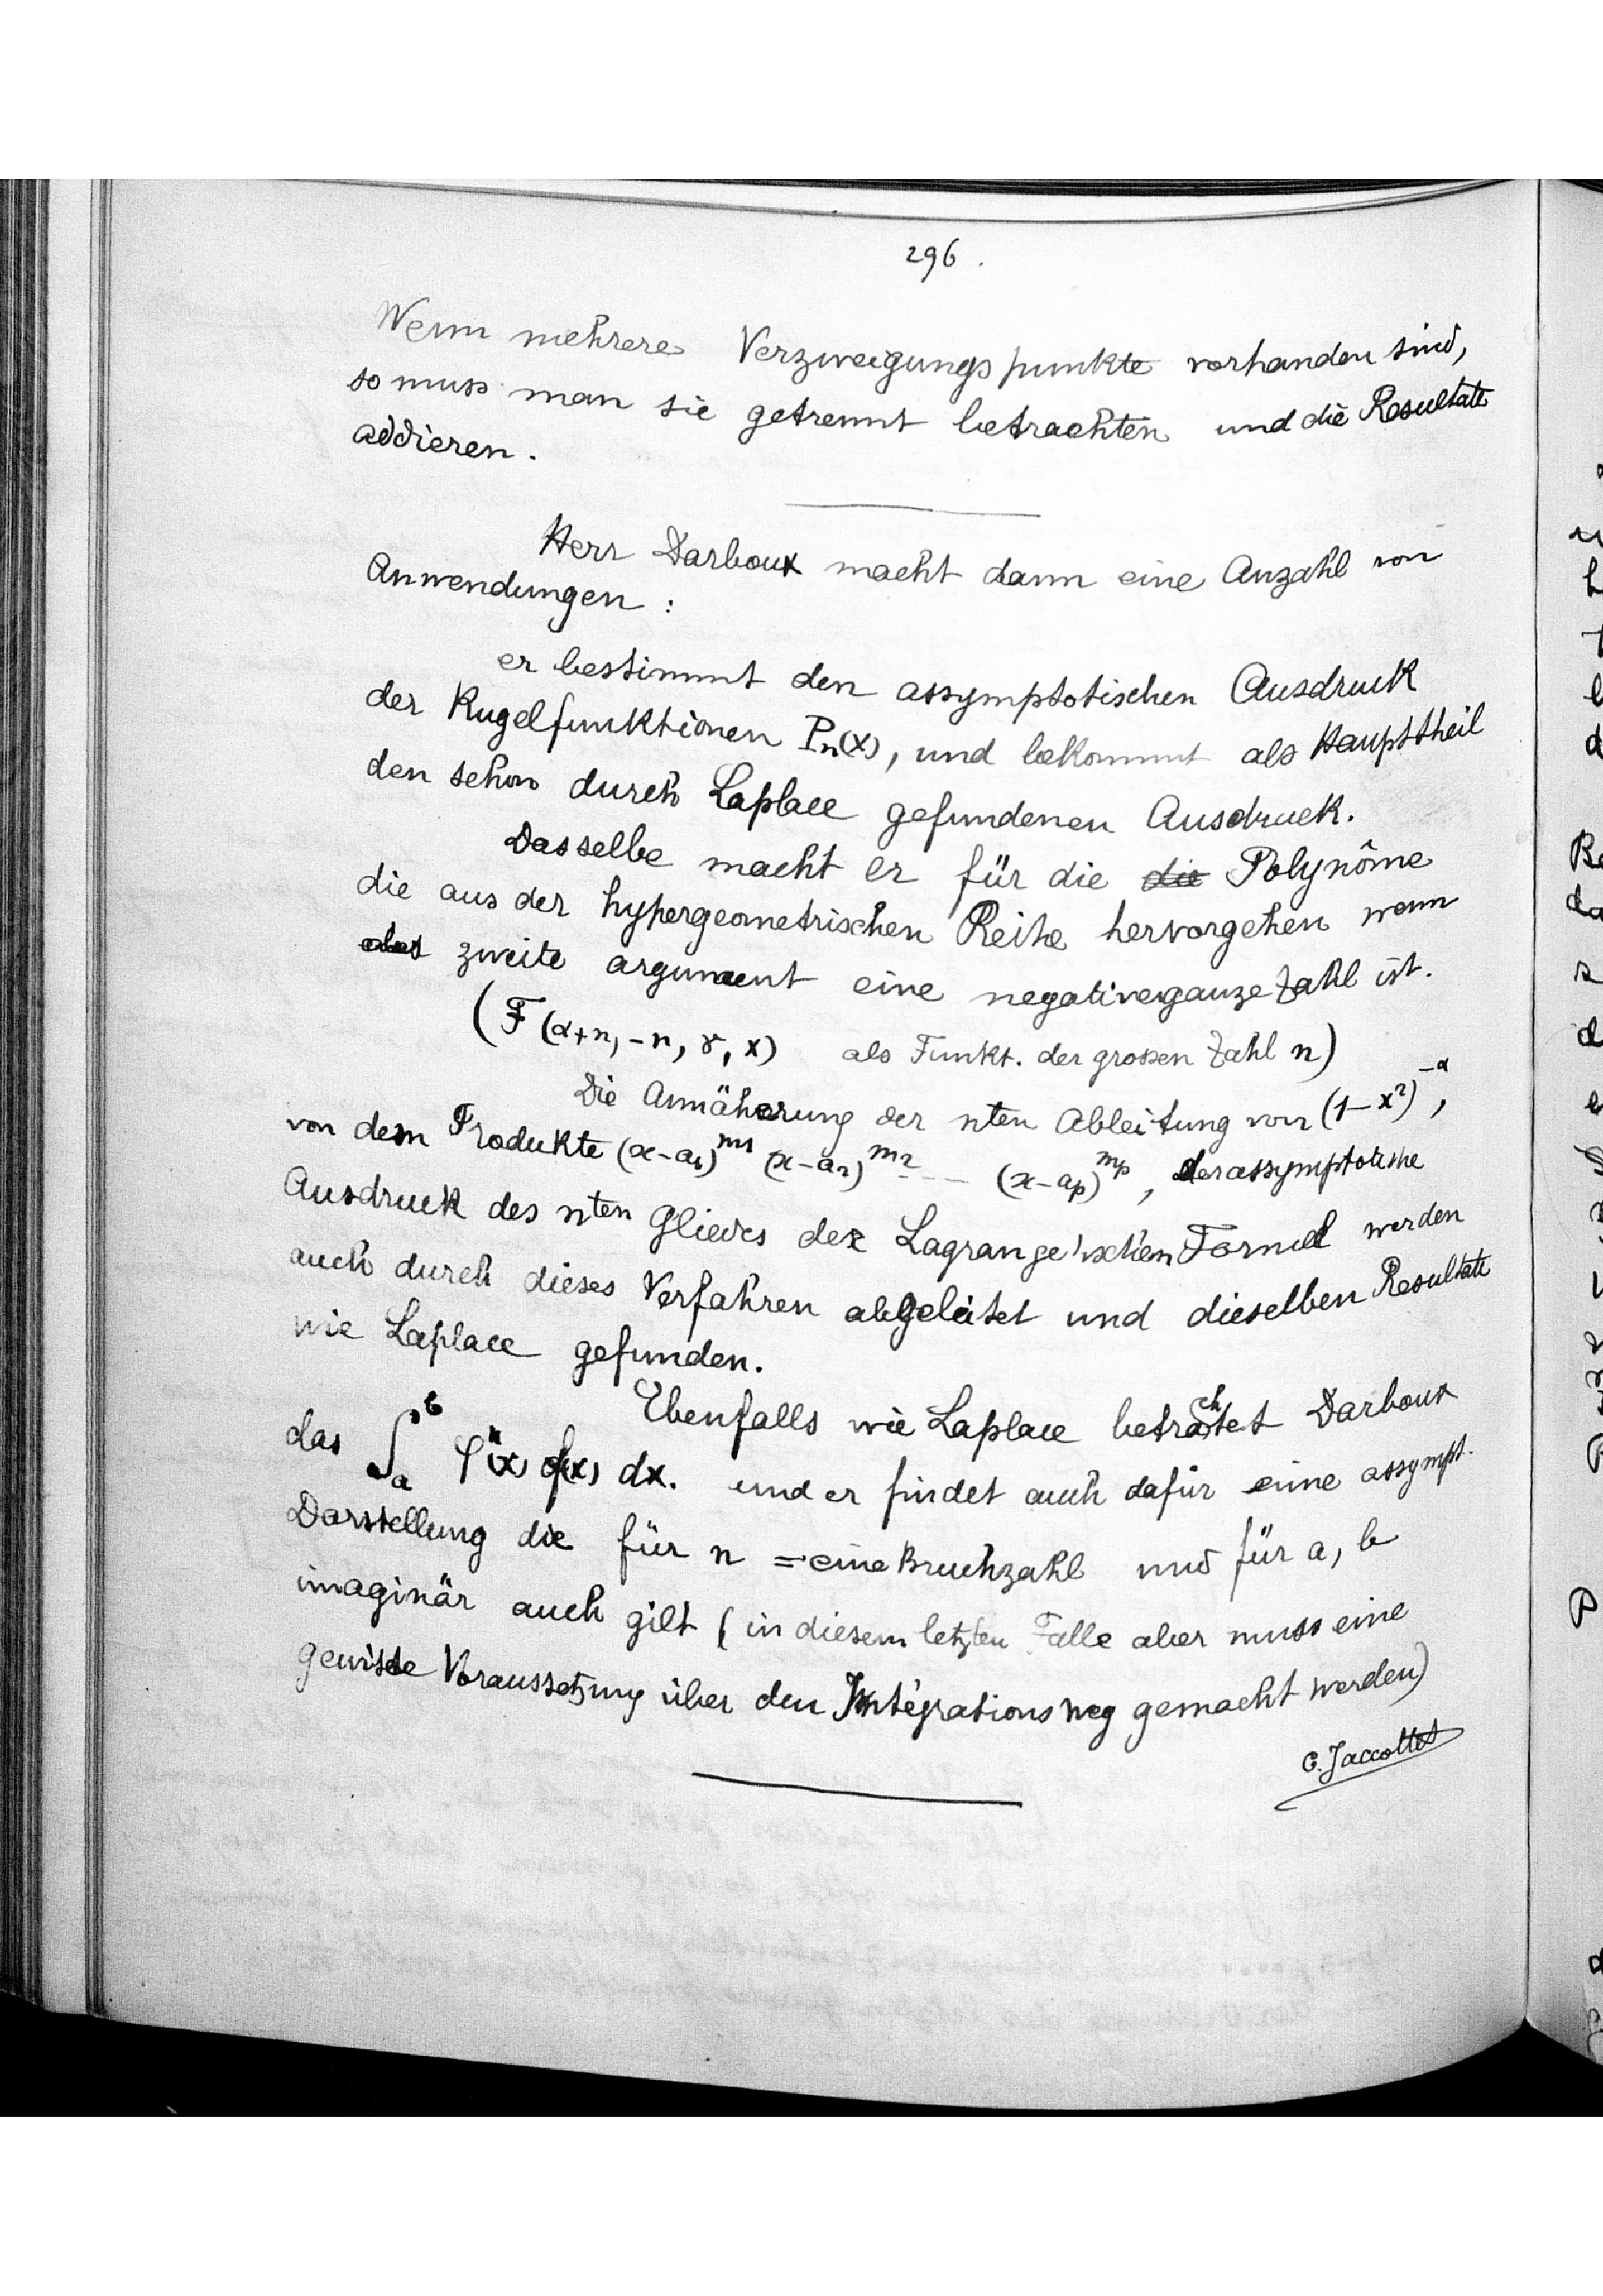 296.
Wenn mehrere Verzweigungspunkte vorhanden sind,
so muss man sie getrennt betrachten und die Resultate
addieren.
Herr Darboux macht dann eine Anzahl von
Anwendungen :
er bestimmt den assymptotischen Ausdruck
der Kugelfunktionen Pₙ(x), und bekommt als Haupttheil
den schon durch Laplace gefundenen Ausdruck.
Dasselbe macht er für die die Polynôme
die aus der hypergeometrischen Reihe hervorgehen wenn
das zweite argument eine negative ganze Zahl ist.
(F (α+n, -n, γ, x) als Funkt. der grossen Zahl n)
Die Annäherung der nten Ableitung von (1-x²)^-α,
von dem Produkte (x-a₁)^m₁ (x-a₂)^m₂ --- (x-aₚ)^mₚ, der assymptotische
Ausdruck des nten Gliedes der Lagrange'schen Formel werden
auch durch dieses Verfahren abgeleitet und dieselben Resultate
wie Laplace gefunden.
Ebenfalls wie Laplace betrachtet Darboux
das ∫ₐᵇ φⁿ(x) f(x) dx. und er findet auch dafür eine assympt.
Darstellung die für n = eine Bruchzahl und für a, b
imaginär auch gilt (in diesem letzten Falle aber muss eine
gewisse Voraussetzung über den Integrationsweg gemacht werden)
C. Jaccottet